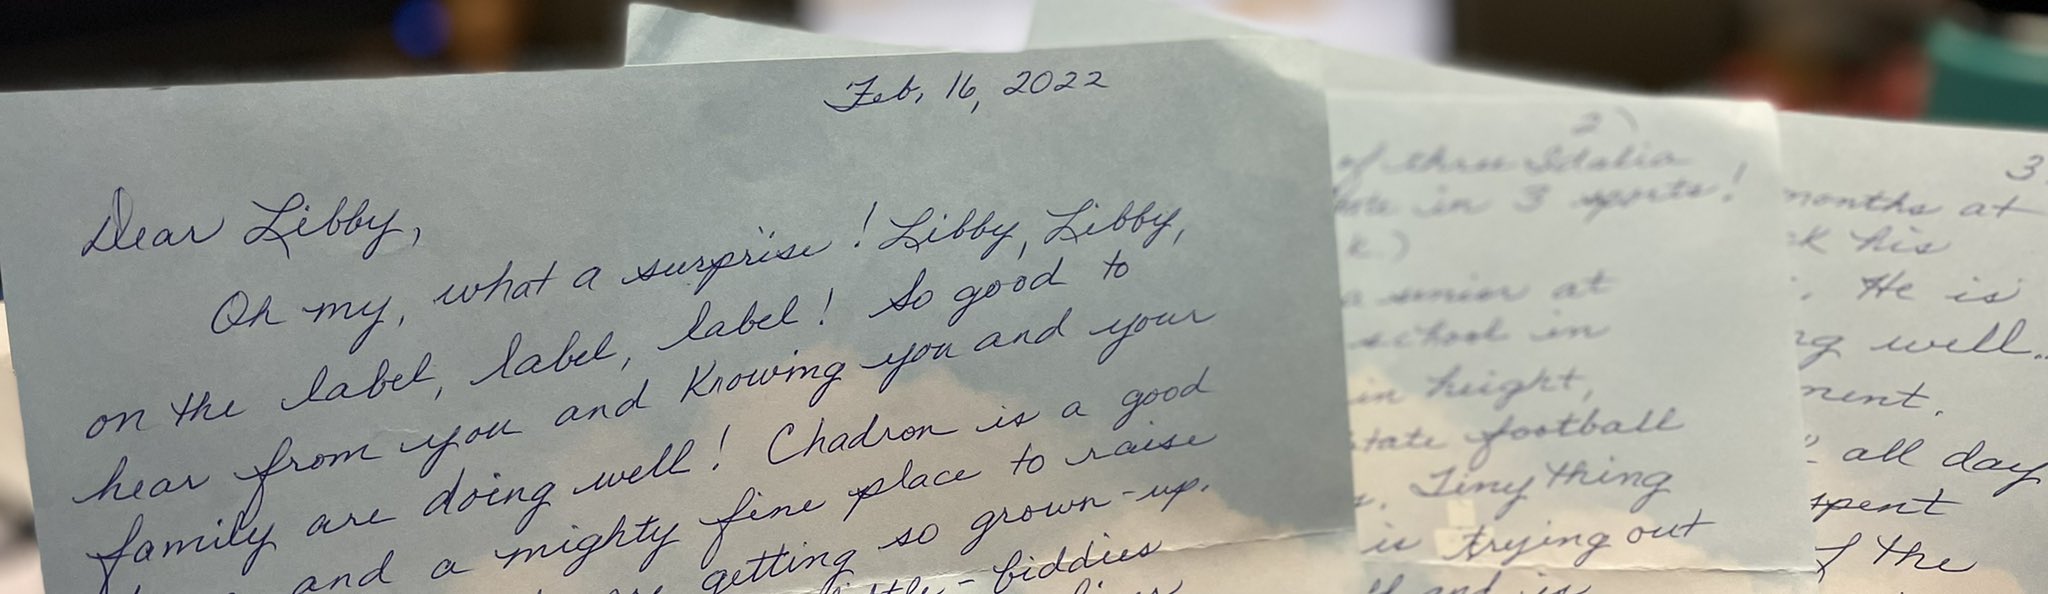 Feb, 16, 2022
Dear Libby,
Oh my, what a surprise! Libby, Libby,
on the label, label, label! So good to
hear from you and Knowing you and your
family are doing well! Chadron is a good
and a mighty fine place to raise
getting so grown-up.
-biddies
2)
of three Idalia
in 3 sports!
a senior at
school in
in height,
football
Tiny thing
is trying out
and is
3
months at
his
He is
well..
all day
spent
the